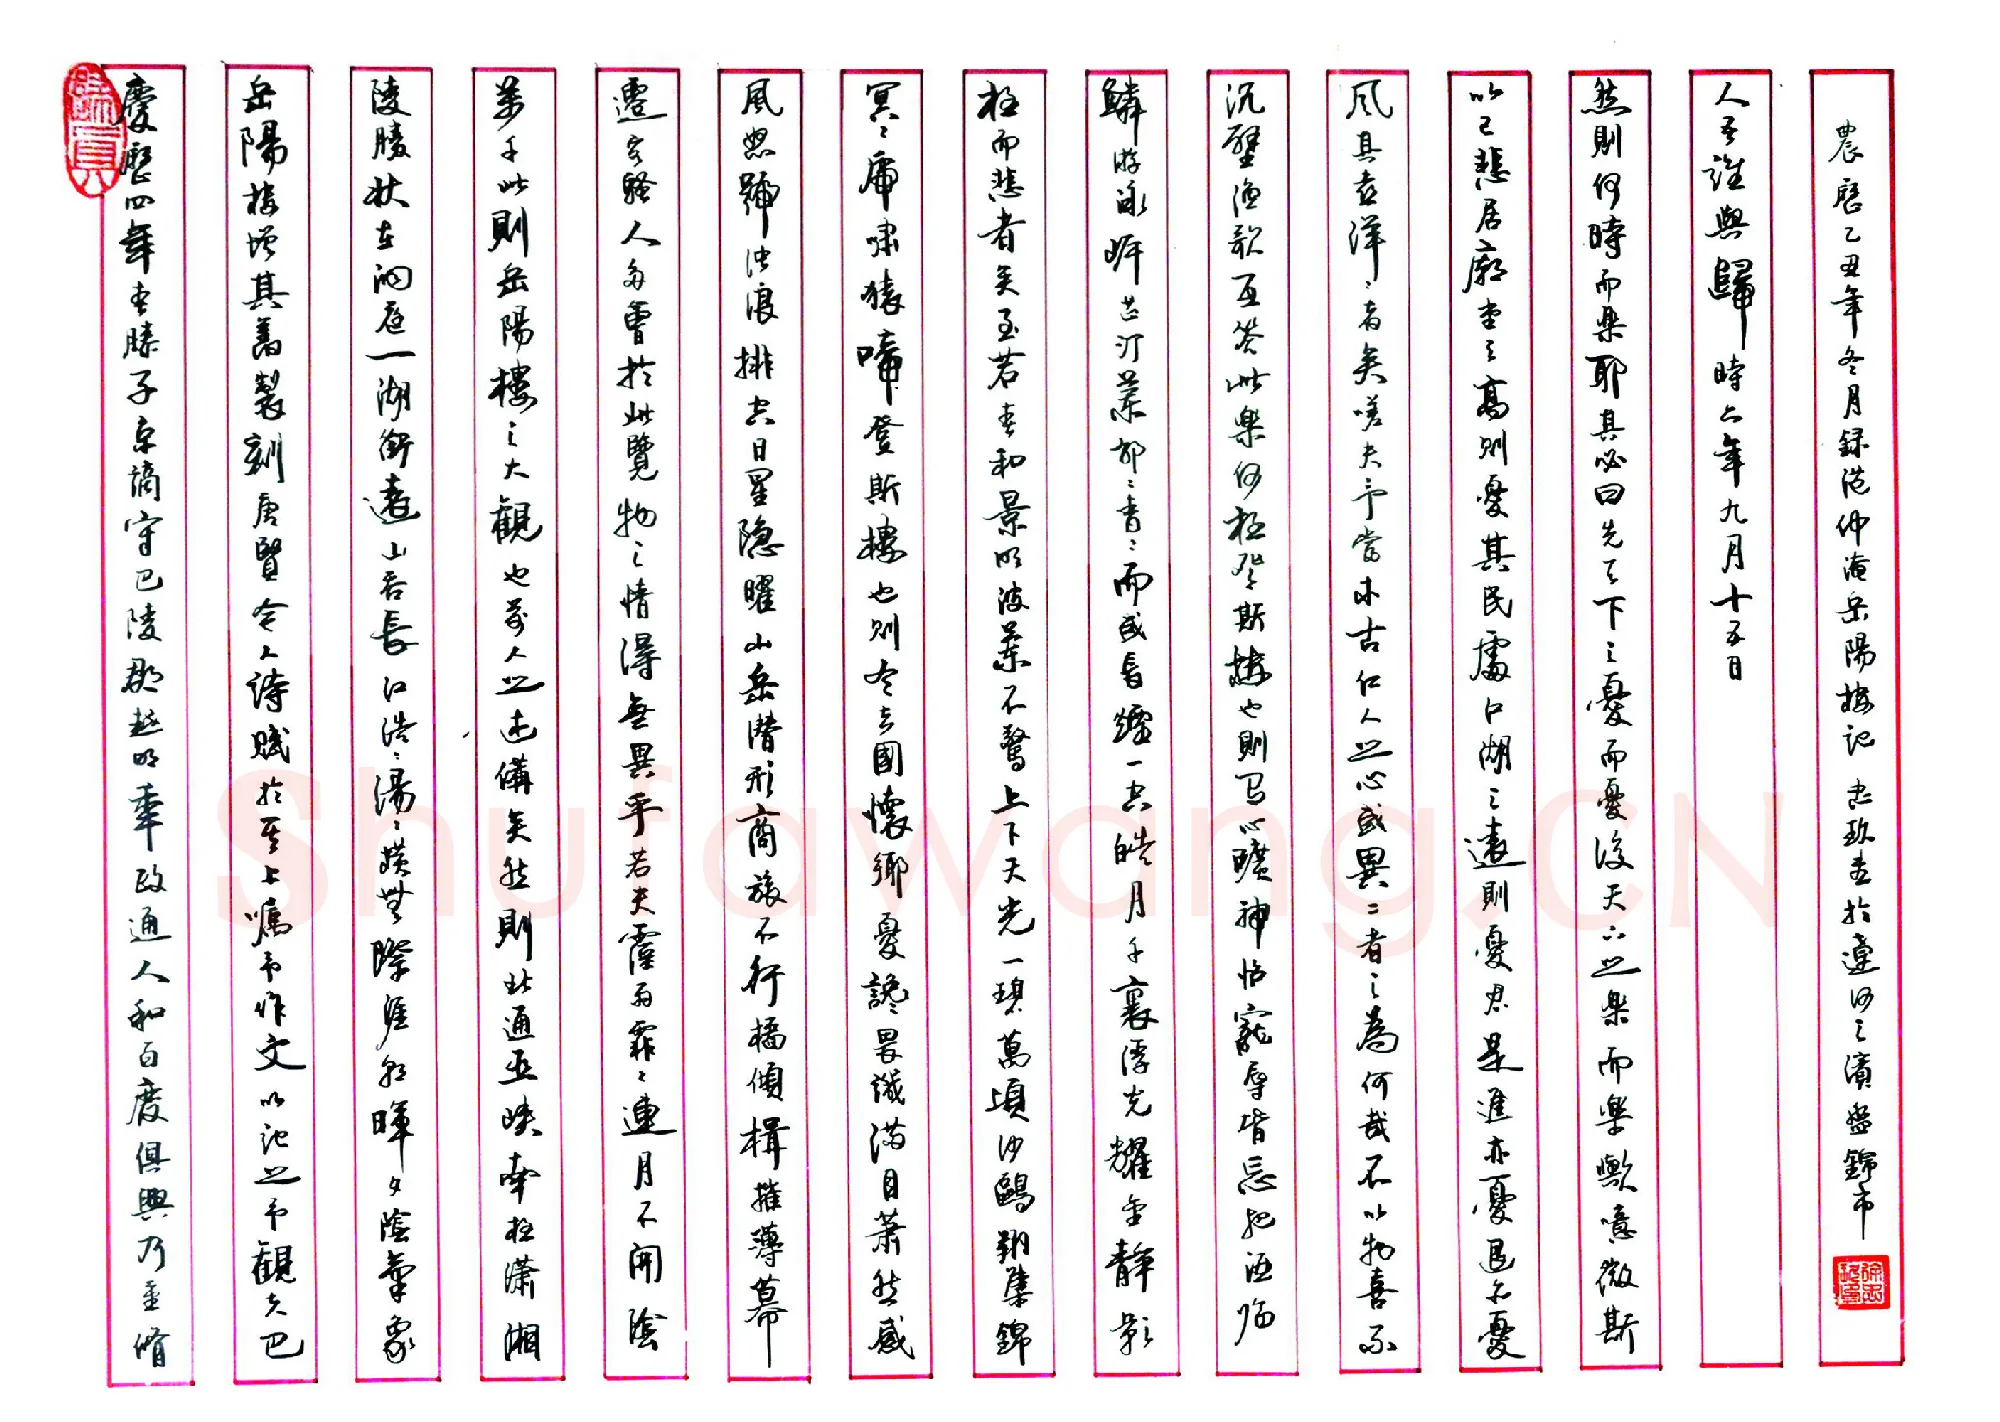 慶歷四年春滕子京謫守巴陵郡越明年政通人和百廢俱興乃重脩
岳陽樓增其舊製刻唐賢今人詩賦於其上囑予作文以記之予觀夫巴
陵勝狀在洞庭一湖銜遠山吞長江浩〻湯〻橫無際涯朝暉夕陰氣象
萬千此則岳陽樓之大觀也前人之述備矣然則北通巫峽南極瀟湘
遷客騷人多會於此覽物之情得無異乎若夫霪雨霏〻連月不開陰
風怒號浊浪排空日星隐曜山岳潜形商旅不行檣傾楫摧薄暮
冥〻虎嘯猿啼登斯樓也則有去國懷鄉憂讒畏譏滿目蕭然感
極而悲者矣至若春和景明波瀾不驚上下天光一碧萬頃沙鷗翔集錦
鱗游泳岸芷汀蘭郁〻青〻而或長煙一空皓月千里浮光耀金靜影
沉璧漁歌互答此樂何極登斯樓也則有心曠神怡寵辱皆忘把酒临
風其喜洋〻者矣嗟夫予嘗求古仁人之心或異二者之為何哉不以物喜不
以己悲居廟堂之高則憂其民處江湖之遠則憂其君是進亦憂退亦憂
然則何時而樂耶其必曰先天下之憂而憂後天下之樂而樂歟噫微斯
人吾誰與歸時六年九月十五日
農歷己丑年冬月錄范仲淹岳陽樓記 志玖書於遼河之濱盤錦市
Shufawang.CN